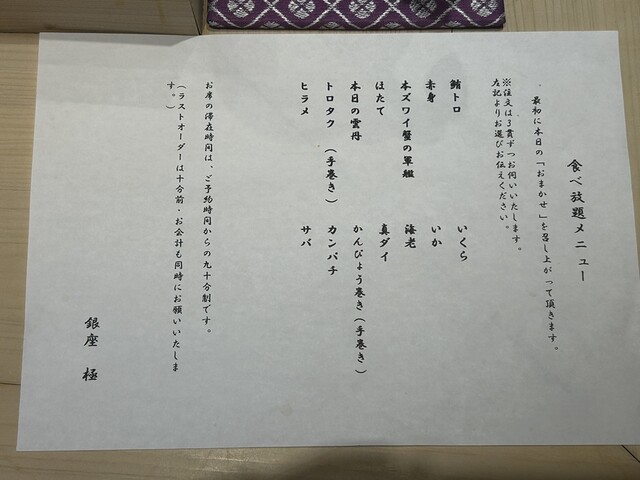 食べ放題メニュー
最初に本日の「おまかせ」を召し上がって頂きます。
※注文は3貫ずつお伺いいたします。
左記よりお選びお伝えください。
鮪トロ　いくら
赤身　いか
本ズワイ蟹の軍艦　海老
ほたて　真ダイ
本日の雲丹　かんぴょう巻き(手巻き)
トロタク　(手巻き)　カンパチ
ヒラメ　サバ
お席の滞在時間は、ご予約時間からの九十分制です。
(ラストオーダーは十分前・お会計も同時にお願いいたしま
す。)
銀座　極